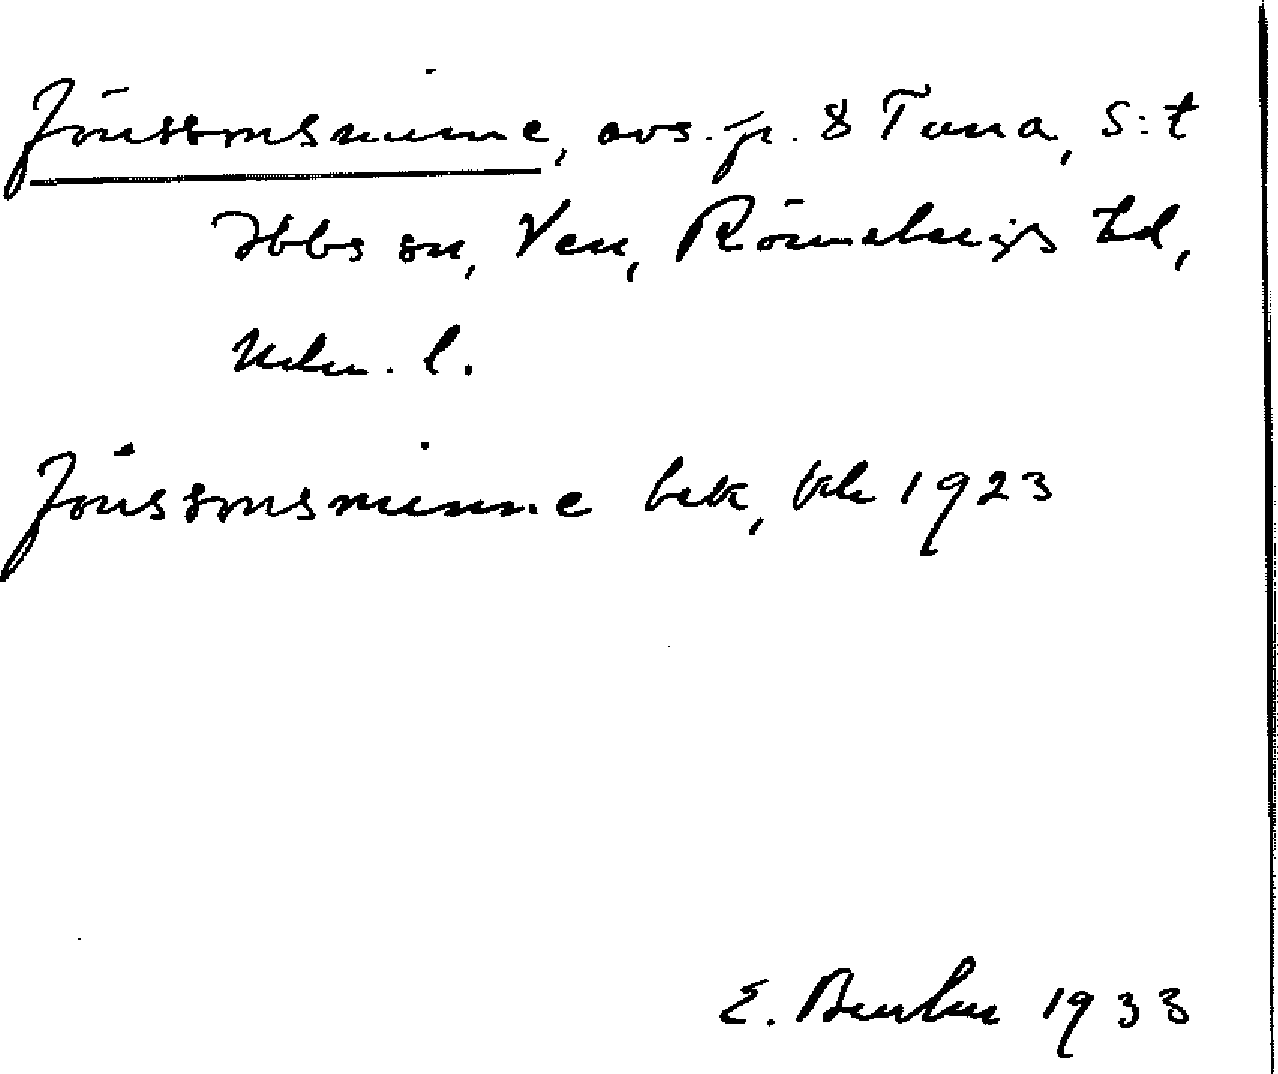 Jönssonsminne, avs. fr. 8 Tuna, S:t
Ibbs sn, Ven, Rönnebergs hd,
Mlm. l.
Jönssonsminne bek, kk 1923
E. 1933